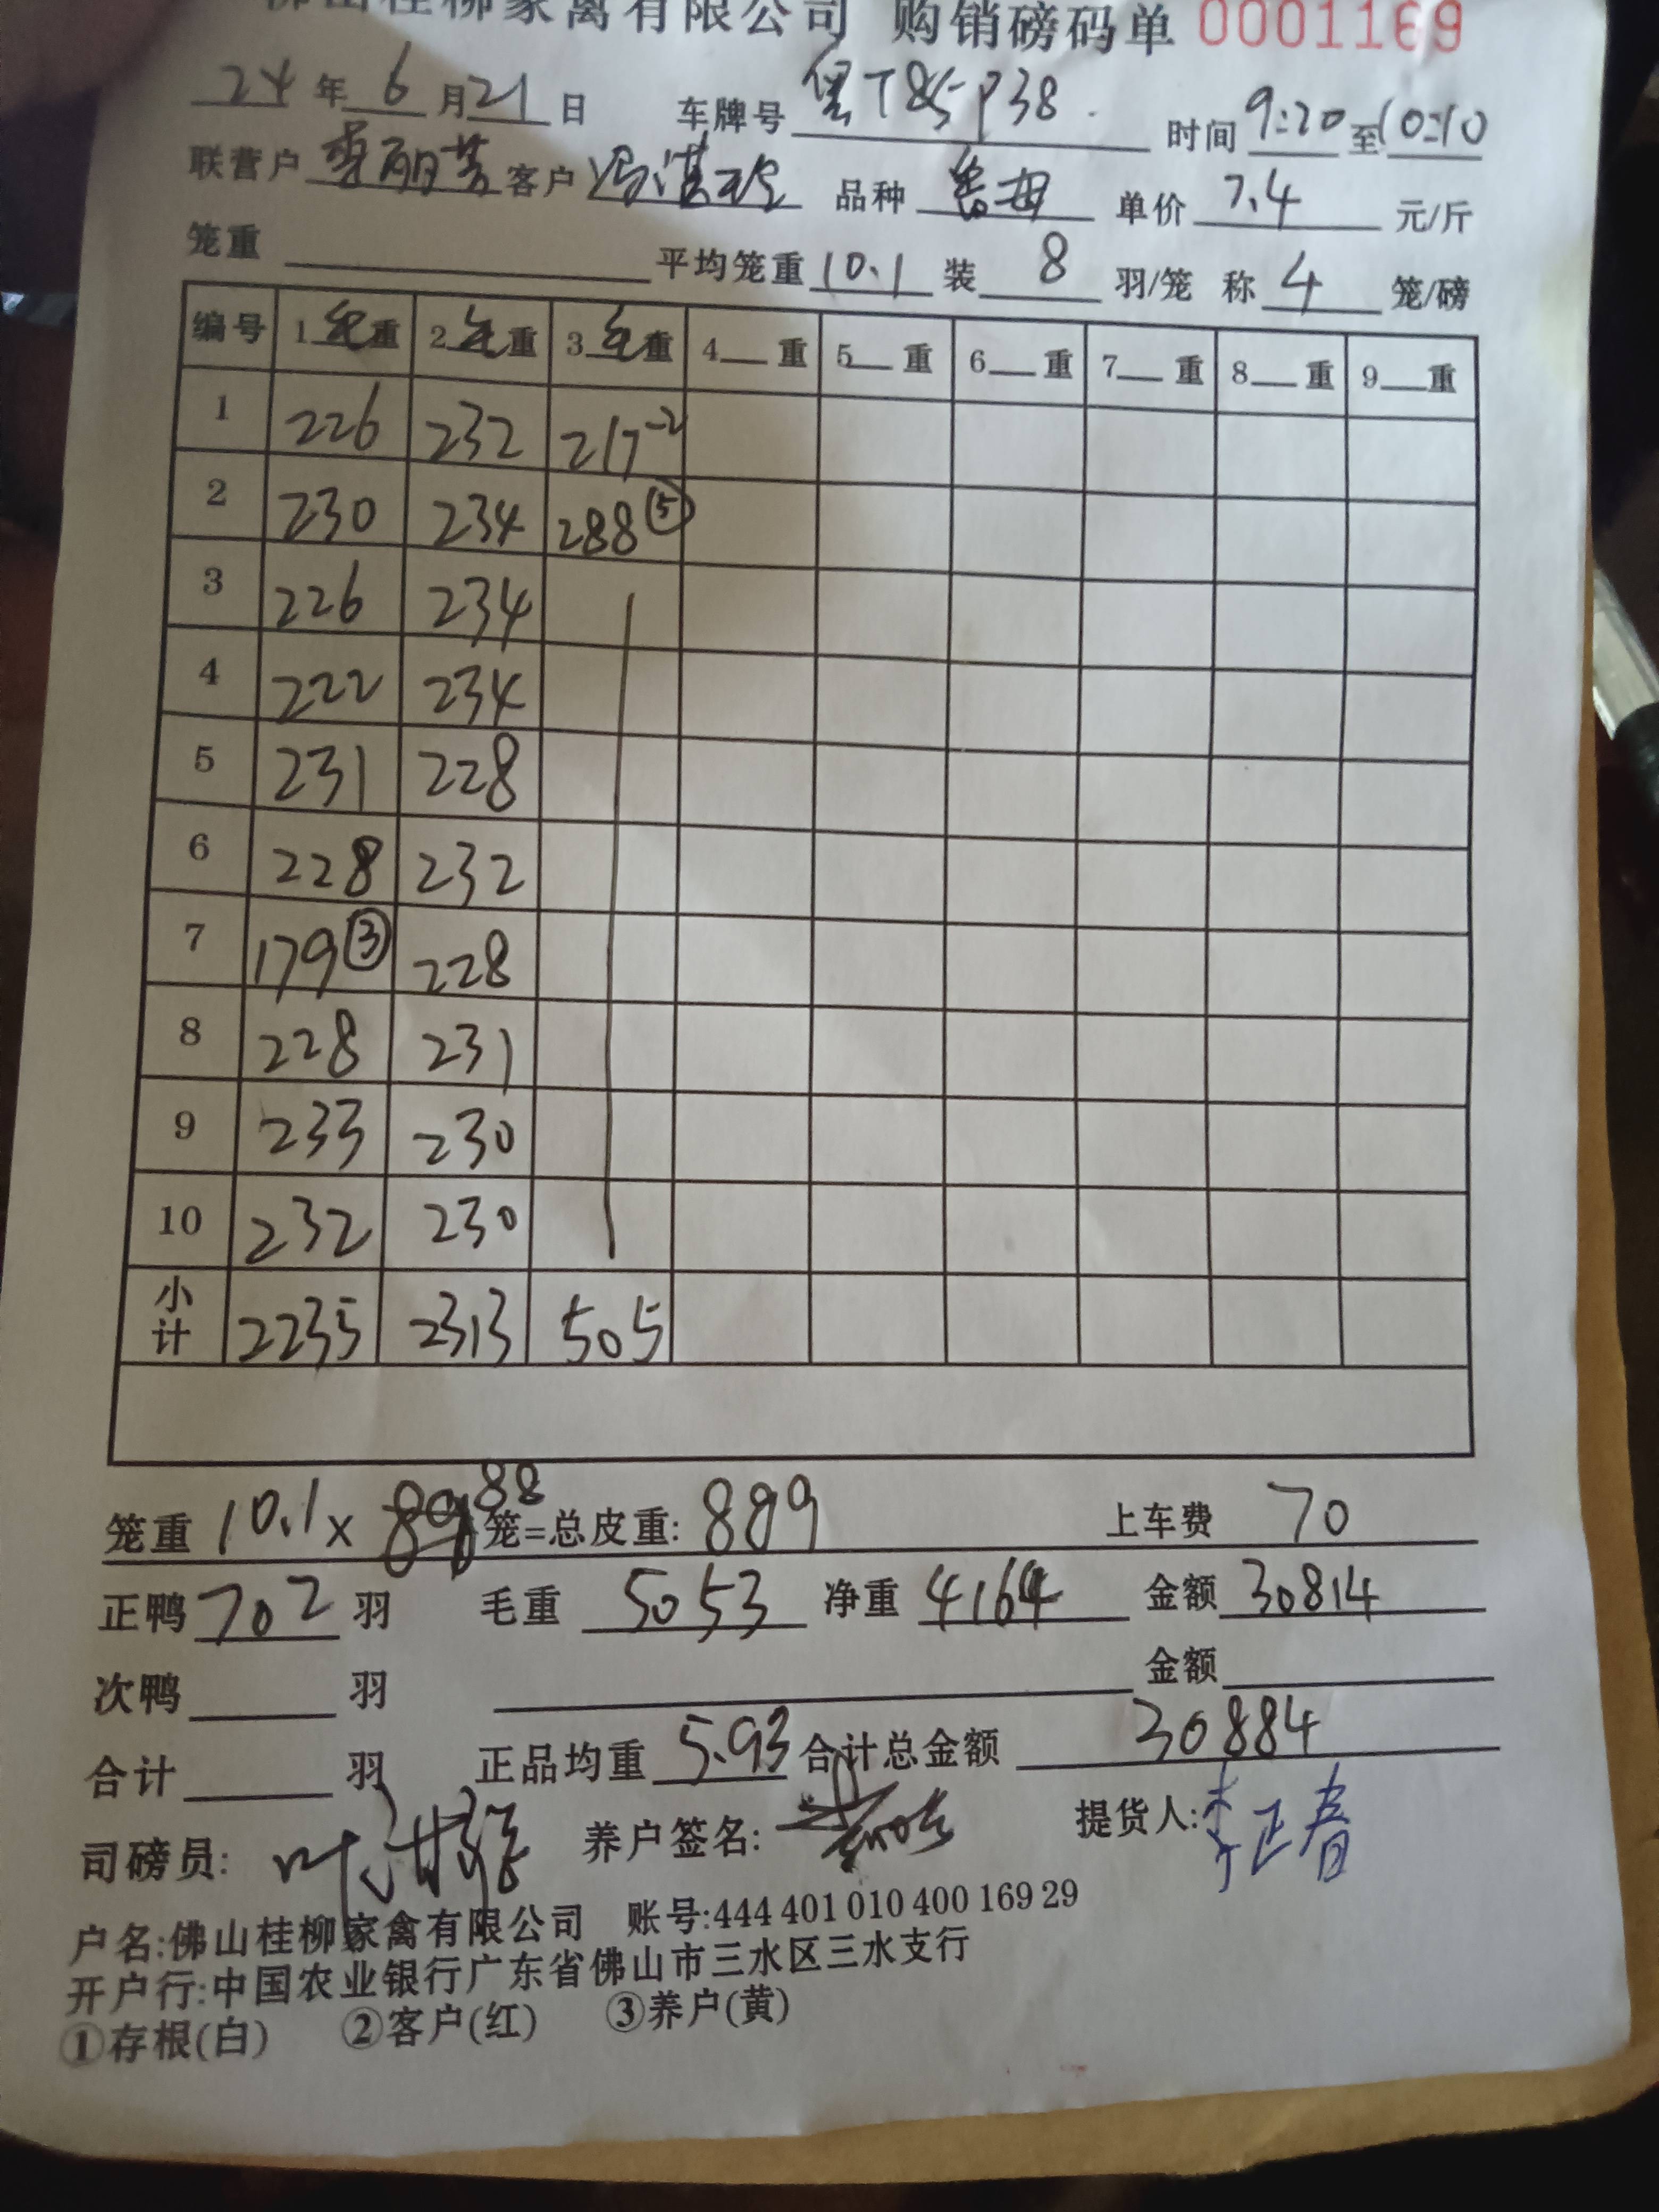 佛山桂柳家禽有限公司 购销磅码单 0001169
24 年 6 月 21 日 车牌号 T855P38 时间 9:20 至 10:10
联营户 客户 品种 单价 7.4 元/斤
笼重 平均笼重 10.1 装 8 羽/笼 称 4 笼/磅
编号 1 毛 重 2 毛 重 3 毛 重 4 重 5 重 6 重 7 重 8 重 9 重
1 226 232 217-2
2 230 234 288⑤
3 226 234
4 222 234
5 231 228
6 228 232
7 179③ 228
8 228 231
9 233 230
10 232 230
小计 2235 2313 505
笼重 10.1 x 88 笼=总皮重: 889 上车费 70
正鸭 702 羽 毛重 5053 净重 4164 金额 30814
次鸭 羽 金额
合计 羽 正品均重 5.93 合计总金额 30884
司磅员: 养户签名: 提货人: 李正春
户名:佛山桂柳家禽有限公司 账号:444 401 010 400 169 29
开户行:中国农业银行广东省佛山市三水区三水支行
①存根(白) ②客户(红) ③养户(黄)